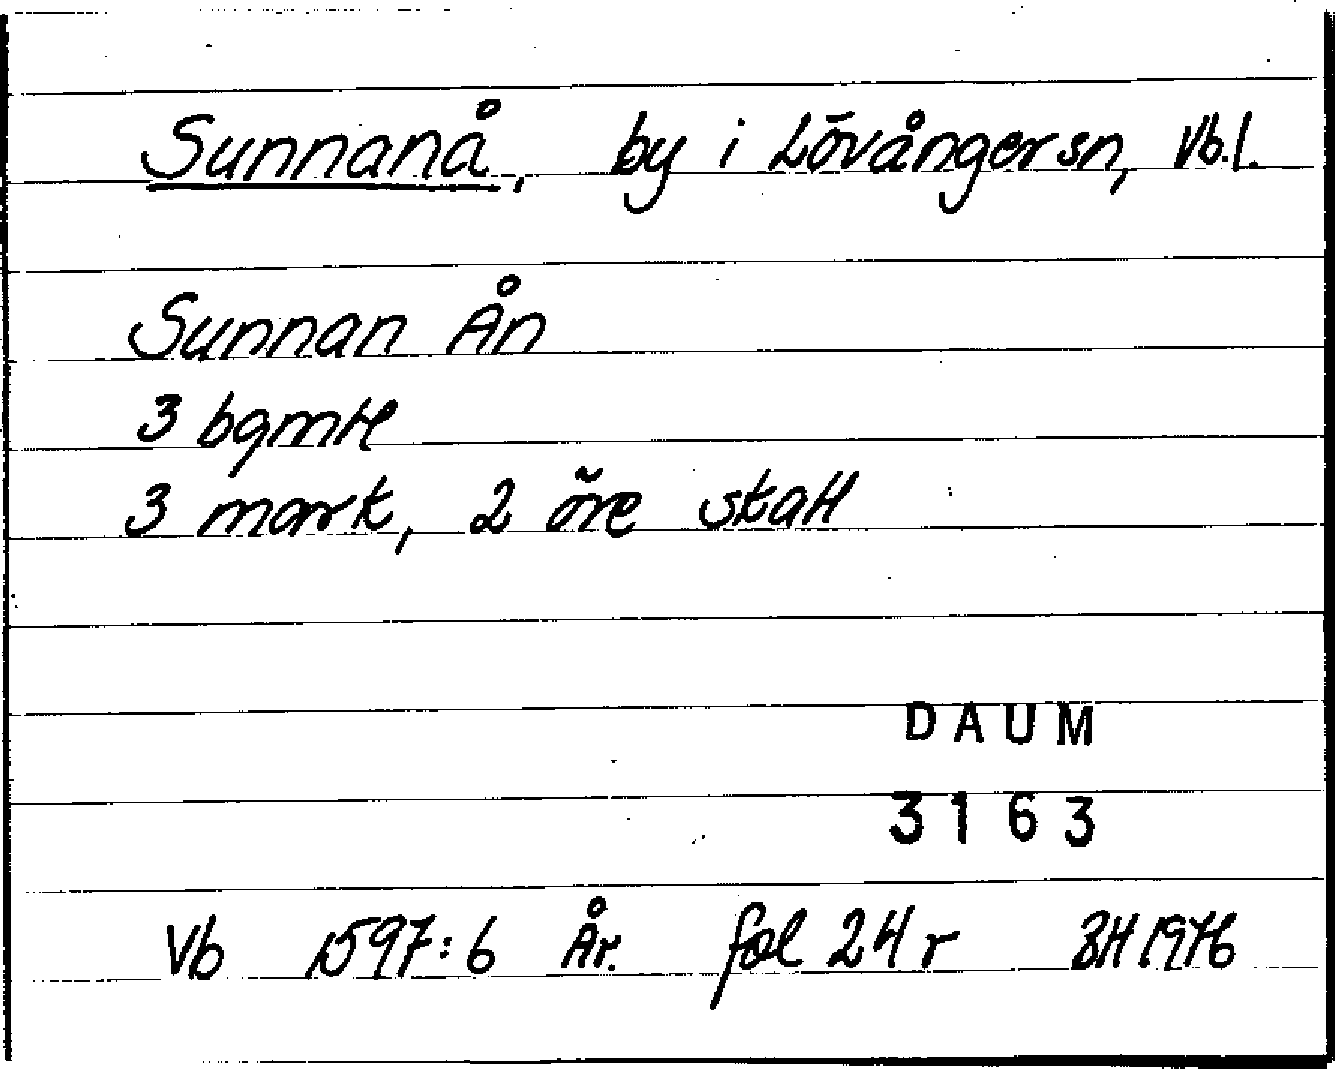 Sunnanå, by i Lövångersn, Vb.l.
Sunnan Ån
3 bgmtl
3 mark, 2 öre skatt
DAUM
3163
Vb 1597:6 År. fol 24 r BH 1976